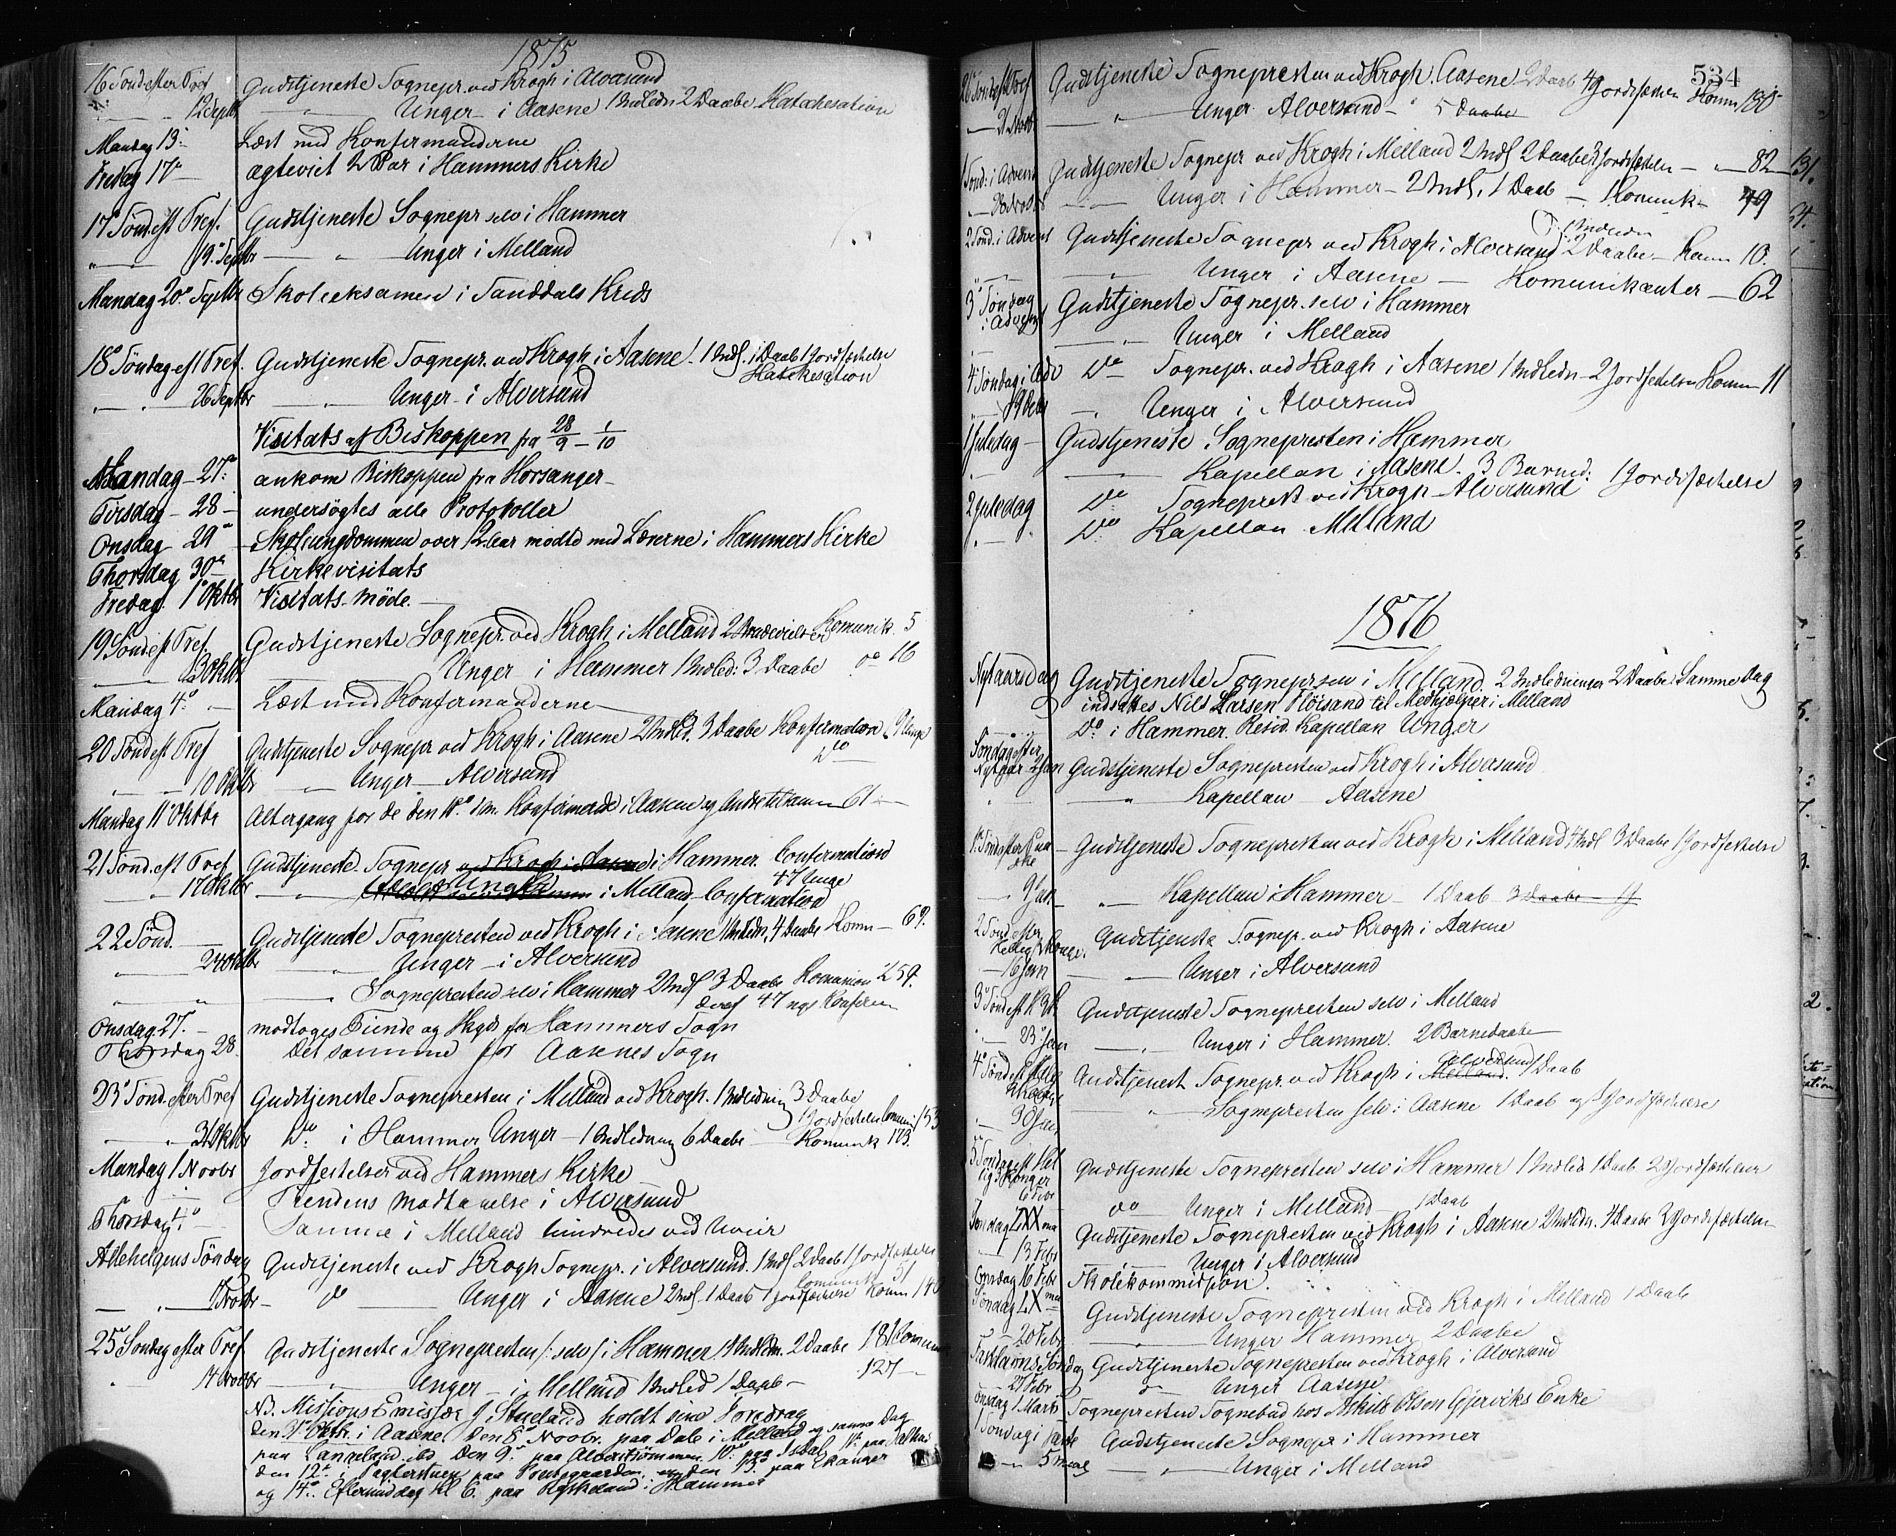 1875
16 Sønd efter Tref Gudstjeneste Sognepr. ved Krogh i Alversund
12 Septbr Unger i Aasene 1 Indledn 2 Daabe Katekesation
Mandag 13 Læst med Konfirmanderne
Fredag 17 ægteviet 2 Par i Hammers Kirke
17 Sønd. eft Tref. Gudstjeneste Sognepr selv i Hammer
19 Septbr Unger i Melland
Mandag 20 Septbr Skoleeksamen i Tanddals Kreds
18 Søndag eft Tref. Gudstjeneste Sognepr. ved Krogh i Aasene 1 Indl. 1 Daab 1 Jordfæstelse
Katekesation
26 Septbr Unger i Alversund
Visitats af Biskoppen fra 28/9 – 1/10
Mandag 27 ankom Biskoppen fra Horsanger
Tirsdag 28 undersøgtes alle Protokoller
Onsdag 29 Skoleungdommen over 12 Aar mødte med Lærerne i Hammers Kirke
Thorsdag 30 Kirkevisitats
Fredag 1 Oktbr Visitats-Møde.
19 Sønd. eft Tref. Gudstjeneste Sognepr. ved Krogh i Melland 2 Komunik. 5
3 Oktbr Unger i Hammer 1 Indled: 3 Daabe do 16
Mandag 4 Læst med Konfirmanderne
20 Sønd. eft Tref Gudstjeneste Sognepr ved Krogh i Aasene 2 Indled. 3 Daabe Konfirmation
10 Oktbr Unger Alversund do
Mandag 11 Oktbr Altergang for de den 10 dm. Konfirmerede i Aasene og Andre tilsammen 61
21 Sønd. eft Tref Gudstjeneste Sognepr ved Krogh i Aasene i Hammer. Confirmation
47 Unge
17 Oktbr Unger i Melland Confirmation
22 Sønd. Gudstjeneste Sognepresten ved Krogh i Aasene 1 Indledn, 4 Daabe Komn 69.
24 Oktbr Unger i Alversund
Sognepresten selv i Hammer 2 Indl 3 Daabe Komunion 259.
deraf 47 nys Konfirm
Onsdag 27. modtoges Tiende og for Hammers Sogn
Thorsdag 28. Det samme for Aasenes Sogn
23 Sønd. efter Tref Gudstjeneste Sognepresten i Melland ved Krogh. 1 Indledning 3 Daabe
1 Jordfæstelse Comun: 153
31 Oktbr Do i Hammer Unger 1 Indledning 6 Daabe Komunk 173.
Mandag 1 Novbr Jordfæstelser ved Hammers Kirke
Tiendens modtagelse i Alversund
Thorsdag 4 Samme i Melland hindredes ved Uveir
Allehelgens Søndag Gudstjeneste ved Krogh Sognepr. i Alversund. 1 Indl 2 Daab 1 Jordfæstelse
Comunik 51
7 Novbr do Unger i Aasene 2 Indl. 1 Daab 1 Jordfæstelse Komn
25 Søndag efter Tref. Gudstjeneste Sognepresten /: selv :/ i Hammer 2 Daabe
14 Novbr Unger i Melland 1 Indled 1 Daab 127
N.B. Missions Emissær J. Stueland holdt sine Foredrag
den 31 Oktb. i Aasene. Den 8 Novbr. paa Dale i Melland og samme Dag
paa Langeland, den 9 paa Alverstrømmen, 10 paa Isdal, 11 paa
den 12 i paa den 13 paa Ekanger
og 14 Eftermiddag Kl 6. paa i Hammer
534
Gudstjeneste Sognepresten ved Krogh. Aasene 2 Daab 4 Jordfæstelser Komn 130
21 Novbr Unger Alversund 5 Daabe
1 Sønd. i Advent Gudstjeneste Sognepr ved Krogh i Melland 2 Indl. 2 Daabe 3 Jordfæsteln 82
28 Novbr Unger i Hammer 2 Indl, 1 Daab Komunk 79
2 Sønd. i Advent Gudstjeneste Sognepr ved Krogh i Alversund 2 Daabe Komn 10.
Unger i Aasene Komunikanter 62
3 Søndag i Advent Gudstjeneste Sognepr. selv i Hammer
Unger i Melland
4 Søndag i Adv Do Sognepr. ved Krogh i Aasene 1 Indledn 2 Jordfæstelser Komn 11
19 Debr Unger i Alversund
1 Juledag Gudstjeneste Sognepresten i Hammer
Kapellan i Aasene. 3 Barned: 1 Jordfæstelse
2 Juledag Do Sogneprest ved Krogh Alversund
Do Kapellan Melland
1876
Nytaarsdag Gudstjeneste Sognepr selv i Melland. 2 Indledninger 2 Daabe. Samme Dag
indsattes Nils Larsen Fløisand til Medhjælper i Melland
Do i Hammer Resid. Kapellan Unger
Søndag efter
Nytaar 2 Jan Gudstjeneste Sognepresten ved Krogh i Alversund
Kapellan Aasene
Gudstjeneste Sognepresten ved Krogh i Melland 4 Indl 3 Daabe 1 Jordfæstelse
9 Jan Kapellan i Hammer 1 Daab 3 Daabe
2 Sønd. efter
Hellig 3 Konge. Gudstjeneste Sognepr. ved Krogh i Aasene
16 Jan Unger i Alversund
3 Sønd eft H.3K Gudstjeneste Sognepresten selv i Melland
23 Jan Unger i Hammer. 2 Barnedaabe
4 Sønd eft Hellig 3 Konger Gudstjenest Sognepr. ved Krogh i Melland Alversund 1 Daab
30 Jan Sognepresten selv i Aasene 1 Daab og 1 Jordfæstelse
5 Søndag eft Hellig 3 Konger Gudstjeneste Sognepresten selv i Hammer 1 Indled 1 Daab 2 Jordfæstelser
6 Febr do Unger i Melland 1 Daab
Søndag LXXma Gudstjeneste Sognepresten ved Krogh i Aasene 2 Indledn. 4 Daabe 2 Jordfæsteln
13 Febr Unger i Alversund
Onsdag 16 Febr Skolekommission.
Søndag LXma Gudstjeneste Sognepresten ved Krogh i Melland 1 Daab
20 Febr Unger Hammer 2 Daabe
Fastelavns Søndag Gudstjeneste Sognepresten ved Krogh i Alversund
27 Febr Unger Aasene
Onsdag 1 Marts Sognepresten Sognebud hos Mikkel Olsen Gjerviks Enke
1 Søndag i Faste Gudstjeneste Sognepr i Hammer
5 Marts Unger i Melland